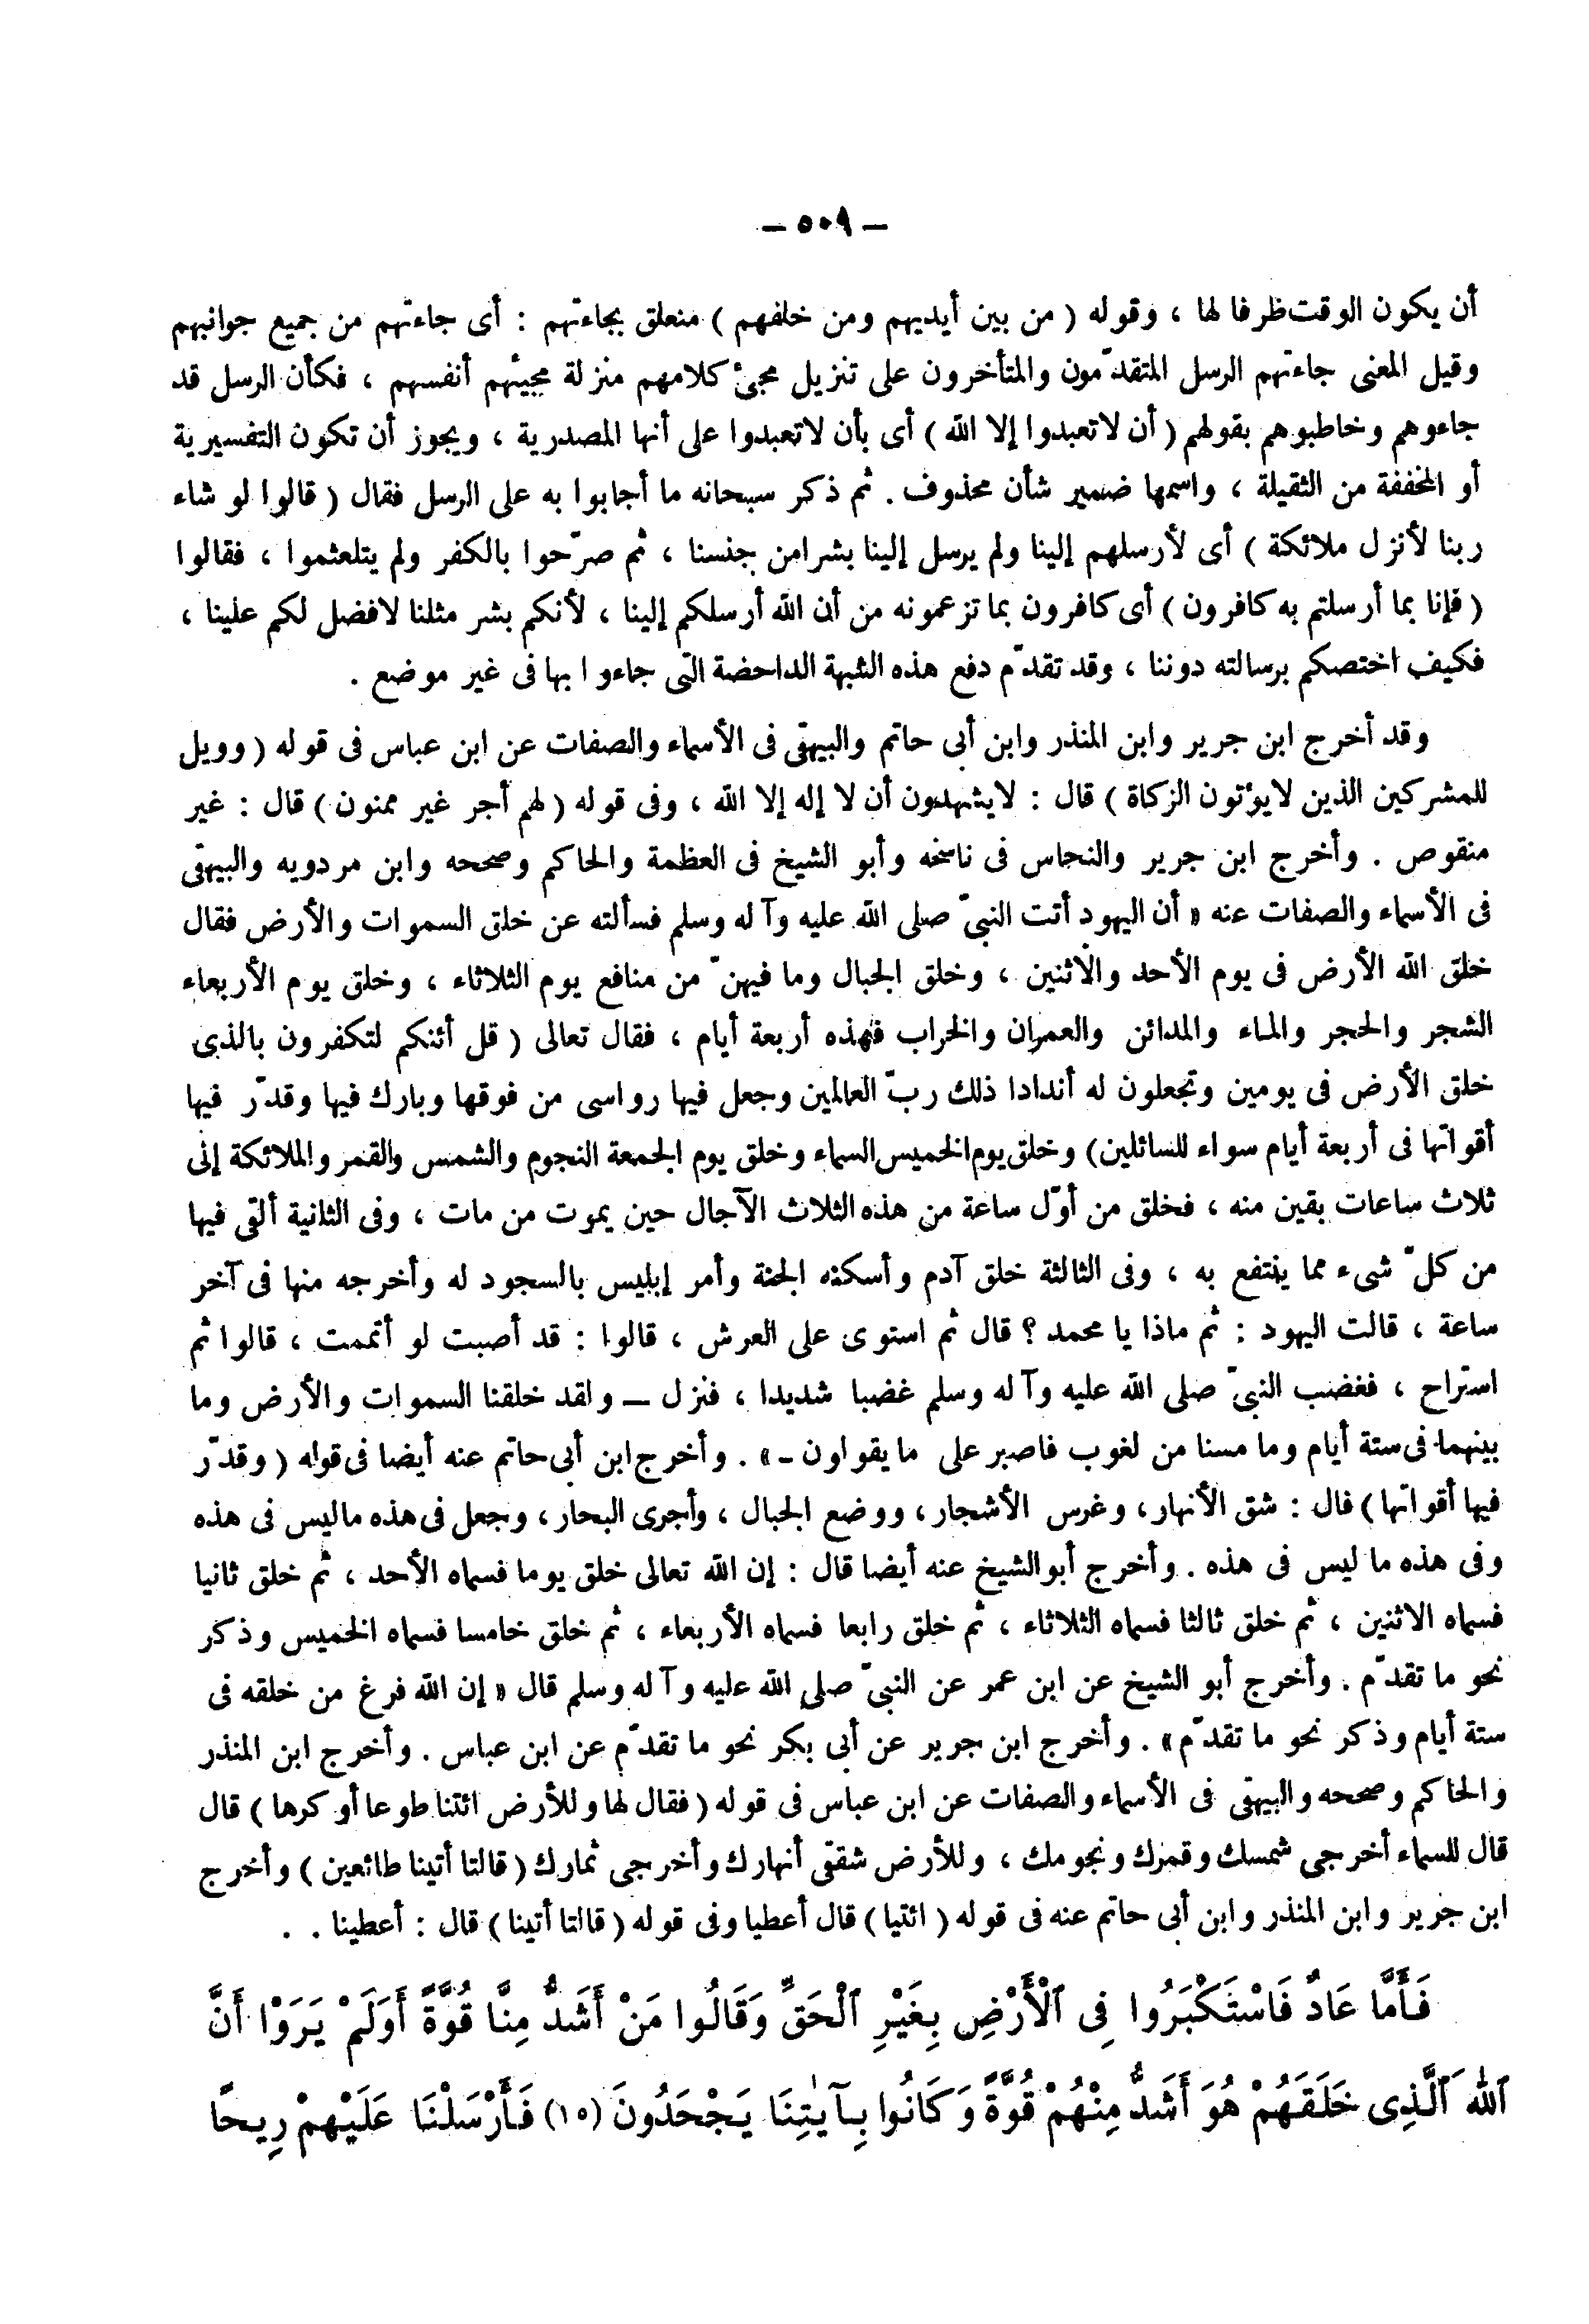 – ٥٠٩ –
أن يكون الوقت ظرفا لها ، وقوله ( من بين أيديهم ومن خلفهم ) متعلق بجاءتهم : أى جاءتهم من جميع جوانبهم
وقيل المعنى جاءتهم الرسل المتقدّمون والمتأخرون على تنزيل مجئ كلامهم منزلة مجيئهم أنفسهم ، فكأن الرسل قد
جاءوهم وخاطبوهم بقولهم ( أن لاتعبدوا إلا الله ) أى بأن لاتعبدوا على أنها المصدرية ، ويجوز أن تكون التفسيرية
أو المخففة من الثقيلة ، واسمها ضمير شأن محذوف . ثم ذكر سبحانه ما أجابوا به على الرسل فقال ( قالوا لو شاء
ربنا لأنزل ملائكة ) أى لأرسلهم إلينا ولم يرسل إلينا بشرا من جنسنا ، ثم صرّحوا بالكفر ولم يتلعثموا ، فقالوا
( فإنا بما أرسلتم به كافرون ) أى كافرون بما تزعمونه من أن الله أرسلكم إلينا ، لأنكم بشر مثلنا لافضل لكم علينا ،
فكيف اختصكم برسالته دوننا ، وقد تقدّم دفع هذه الشبهة الداحضة التى جاءوا بها فى غير موضع .
وقد أخرج ابن جرير وابن المنذر وابن أبى حاتم والبيهقى فى الأسماء والصفات عن ابن عباس فى قوله ( وويل
للمشركين الذين لايؤتون الزكاة ) قال : لايشهدون أن لا إله إلا الله ، وفى قوله ( لهم أجر غير ممنون ) قال : غير
منقوص . وأخرج ابن جرير والنحاس فى ناسخه وأبو الشيخ فى العظمة والحاكم وصححه وابن مردويه والبيهقى
فى الأسماء والصفات عنه « أن اليهود أتت النبىّ صلى الله عليه وآله وسلم فسألته عن خلق السموات والأرض فقال
خلق الله الأرض فى يوم الأحد والاثنين ، وخلق الجبال وما فيهنّ من منافع يوم الثلاثاء ، وخلق يوم الأربعاء
الشجر والحجر والماء والمدائن والعمران والخراب فهذه أربعة أيام ، فقال تعالى ( قل أئنكم لتكفرون بالذى
خلق الأرض فى يومين وتجعلون له أندادا ذلك ربّ العالمين وجعل فيها رواسى من فوقها وبارك فيها وقدّر فيها
أقواتها فى أربعة أيام سواء للسائلين) وخلق يوم الخميس السماء وخلق يوم الجمعة النجوم والشمس والقمر والملائكة إلى
ثلاث ساعات بقين منه ، فخلق من أوّل ساعة من هذه الثلاث الآجال حين يموت من مات ، وفى الثانية ألقى فيها
من كلّ شىء مما ينتفع به ، وفى الثالثة خلق آدم وأسكنه الجنة وأمر إبليس بالسجود له وأخرجه منها فى آخر
ساعة ، قالت اليهود : ثم ماذا يا محمد ؟ قال ثم استوى على العرش ، قالوا : قد أصبت لو أتممت ، قالوا ثم
استراح ، فغضب النبىّ صلى الله عليه وآله وسلم غضبا شديدا ، فنزل – ولقد خلقنا السموات والأرض وما
بينهما فى ستة أيام وما مسنا من لغوب فاصبر على ما يقولون –» . وأخرج ابن أبى حاتم عنه أيضا فى قوله ( وقدّر
فيها أقواتها ) قال : شق الأنهار، وغرس الأشجار، ووضع الجبال ، وأجرى البحار، وجعل فى هذه ماليس فى هذه
وفى هذه ما ليس فى هذه . وأخرج أبوالشيخ عنه أيضا قال : إن الله تعالى خلق يوما فسماه الأحد ، ثم خلق ثانيا
فسماه الاثنين ، ثم خلق ثالثا فسماه الثلاثاء ، ثم خلق رابعا فسماه الأربعاء ، ثم خلق خامسا فسماه الخميس وذكر
نحو ما تقدّم . وأخرج أبو الشيخ عن ابن عمر عن النبىّ صلى الله عليه وآله وسلم قال « إن الله فرغ من خلقه فى
ستة أيام وذكر نحو ما تقدّم» . وأخرج ابن جرير عن أبى بكر نحو ما تقدّم عن ابن عباس . وأخرج ابن المنذر
والحاكم وصححه والبيهقى فى الأسماء والصفات عن ابن عباس فى قوله ( فقال لها وللأرض ائتنا طوعا أو كرها ) قال
قال للسماء أخرجى شمسك وقمرك ونجومك ، وللأرض شققى أنهارك وأخرجى ثمارك ( قالتا أتينا طائعين ) وأخرج
ابن جرير وابن المنذر وابن أبى حاتم عنه فى قوله ( ائتيا ) قال أعطيا وفى قوله ( قالتا أتينا ) قال : أعطينا . .
فَأَمَّا عَادٌ فَاسْتَكْبَرُوا فِى ٱلْأَرْضِ بِغَيْرِ ٱلْحَقِّ وَقَالُوا مَنْ أَشَدُّ مِنَّا قُوَّةً أَوَلَمْ يَرَوْا أَنَّ
ٱللهَ ٱلَّذِى خَلَقَهُمْ هُوَ أَشَدُّ مِنْهُمْ قُوَّةً وَكَانُوا بِآيٰتِنَا يَجْحَدُونَ (١٥) فَأَرْسَلْنَا عَلَيْهِمْ رِيحًا